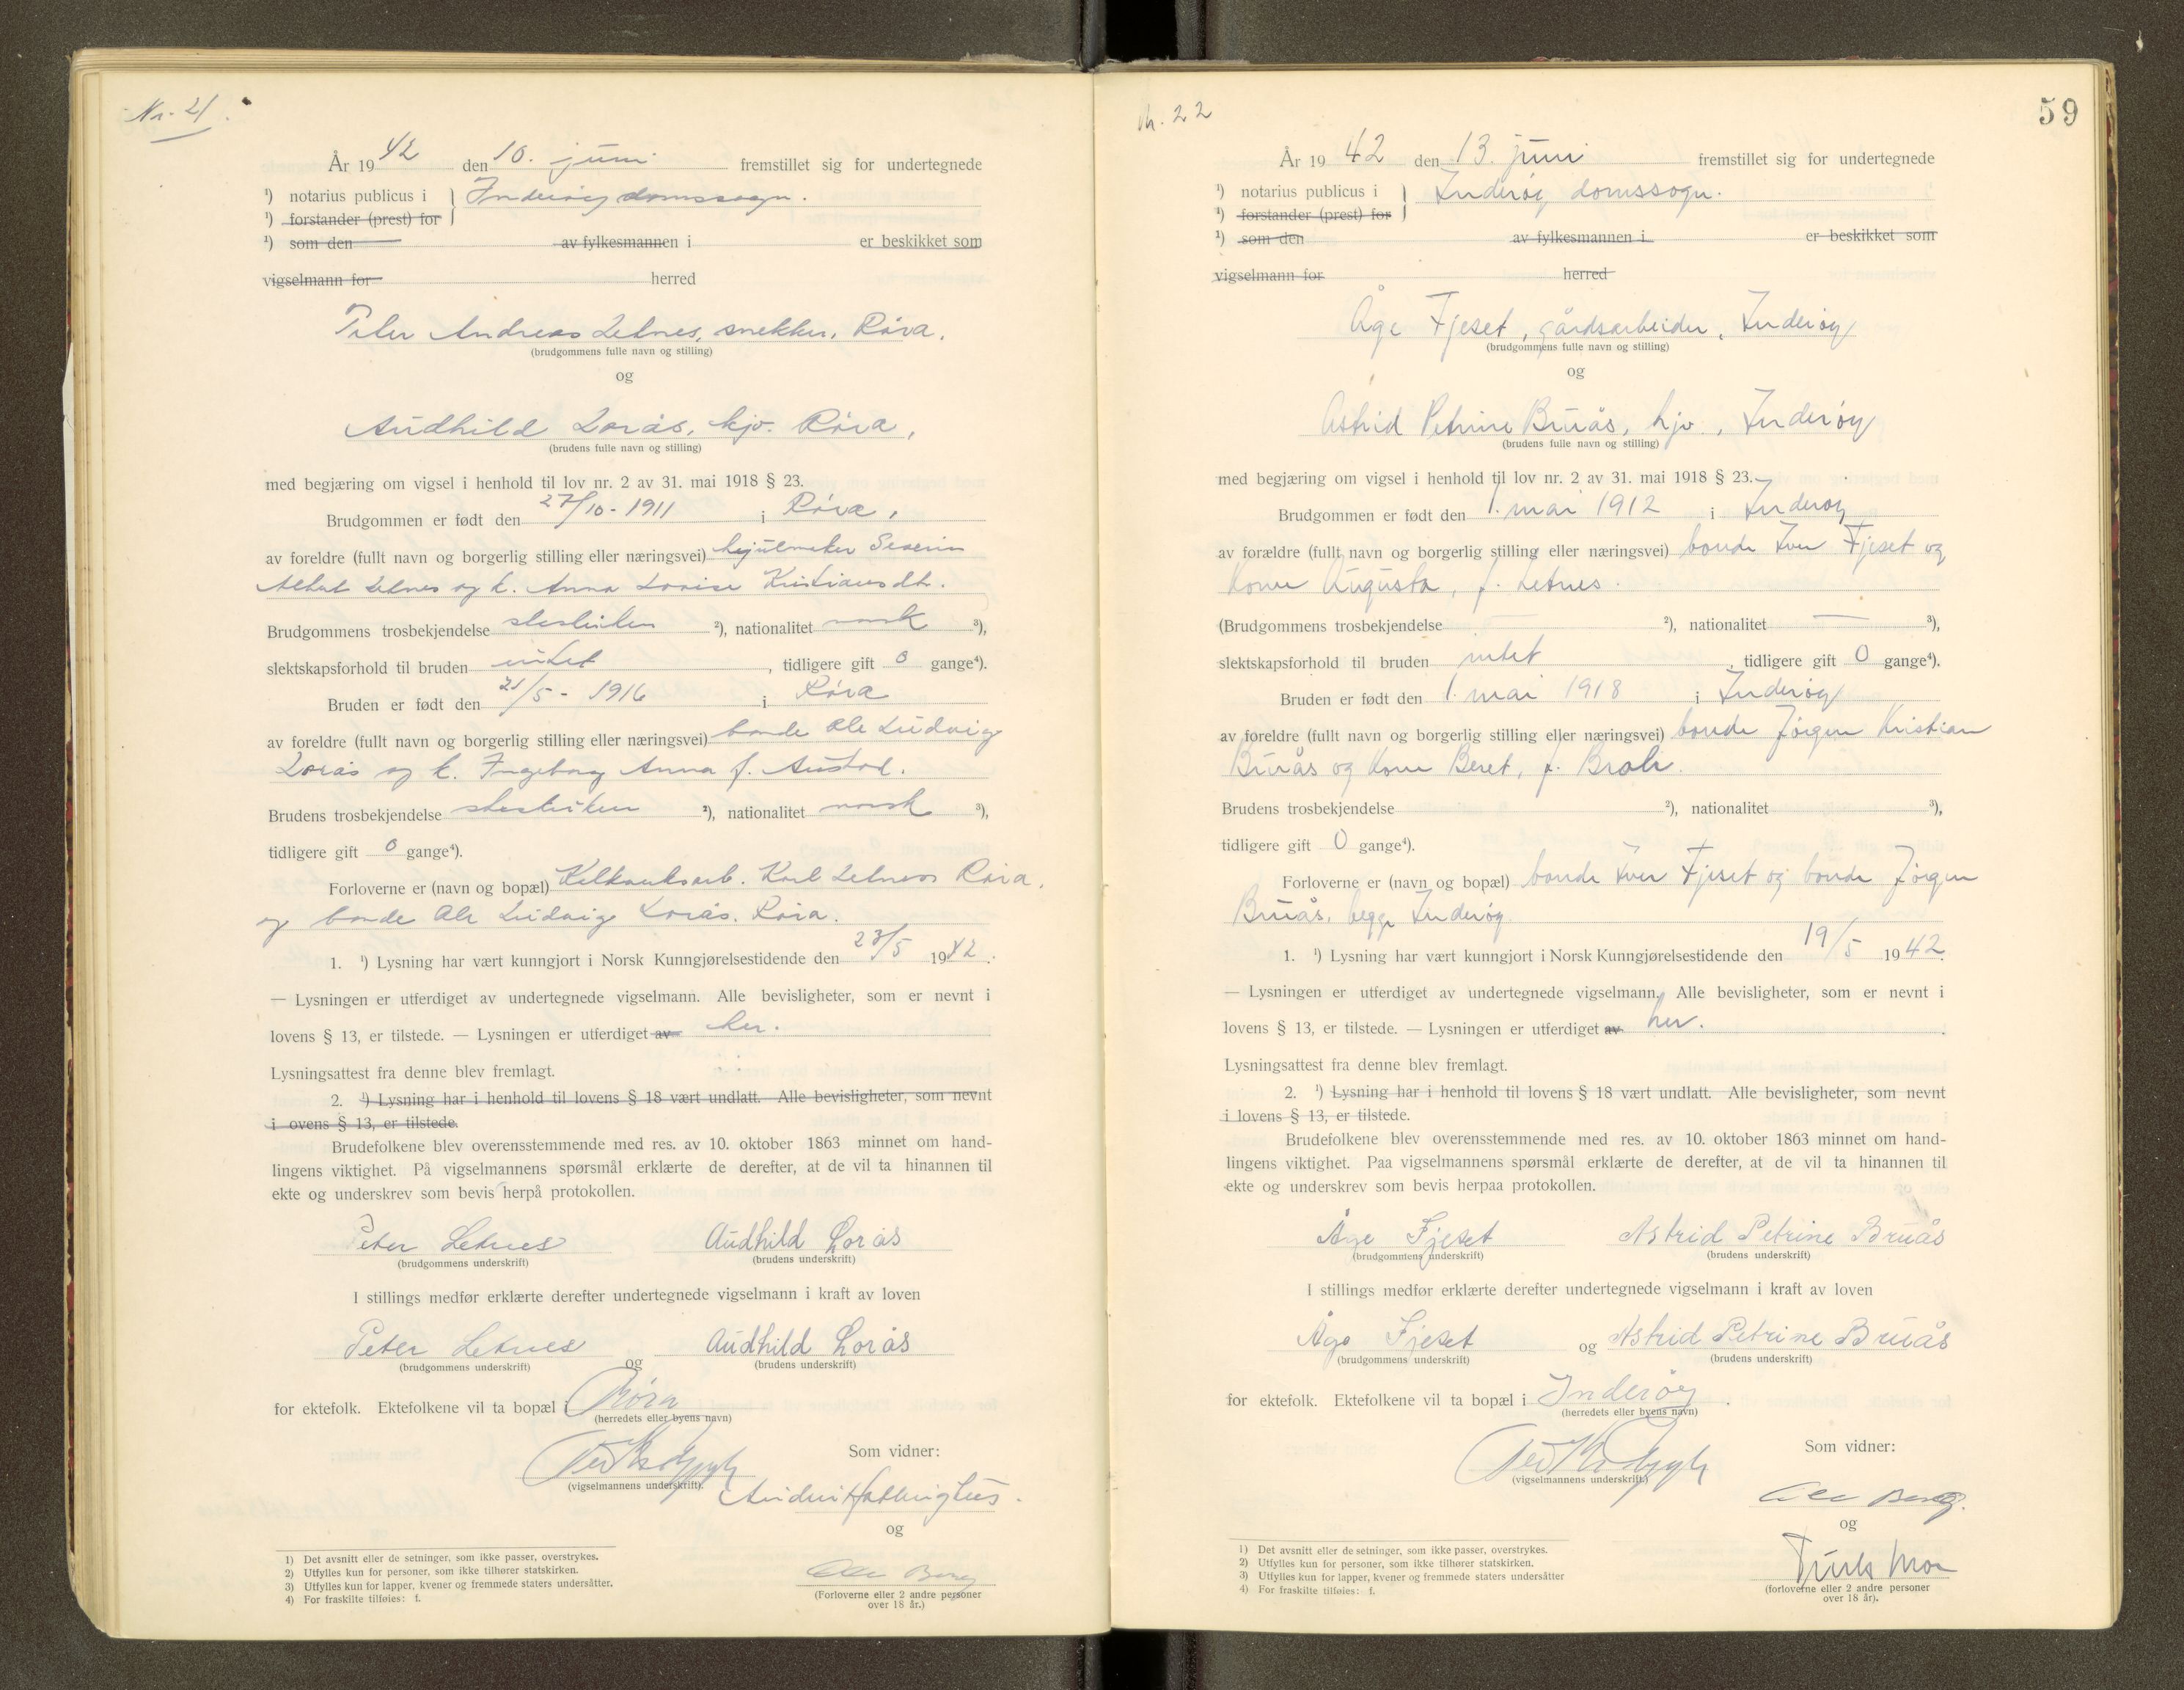 Nr. 21.
År 1942 den 10. juni fremstillet sig for undertegnede
¹) notarius publicus i } Inderøy domssogn.
¹) forstander (prest) for
¹) som den av fylkesmannen i er beskikket som
vigselmann for herred
Peter Andreas Letnes, snekker, Røra.
(brudgommens fulle navn og stilling)
og
Audhild Lorås, hjv. Røra,
(brudens fulle navn og stilling)
med begjæring om vigsel i henhold til lov nr. 2 av 31. mai 1918 § 23.
Brudgommen er født den 27/10 - 1911 i Røra,
av foreldre (fullt navn og borgerlig stilling eller næringsvei) hjulmaker Severin
Albert Letnes og k. Anna Lovise Kristiansdtr.
Brudgommens trosbekjendelse statskirken ²), nationalitet norsk ³),
slektskapsforhold til bruden intet, tidligere gift 0 gange⁴).
Bruden er født den 21/5 - 1916 i Røra
av foreldre (fullt navn og borgerlig stilling eller næringsvei) bonde Ole Ludvig
Lorås og k. Ingeborg Anna f. Austad.
Brudens trosbekjendelse statskirken ²), nationalitet norsk ³),
tidligere gift 0 gange⁴).
Forloverne er (navn og bopæl) Karl Letnes Røra,
og bonde Ole Ludvig Lorås. Røra.
1. ¹) Lysning har vært kunngjort i Norsk Kunngjørelsestidende den 23/5 1942.
— Lysningen er utferdiget av undertegnede vigselmann. Alle bevisligheter, som er nevnt i
lovens § 13, er tilstede. — Lysningen er utferdiget av her.
Lysningsattest fra denne blev fremlagt.
2. ¹) Lysning har i henhold til lovens § 18 vært undlatt. Alle bevisligheter, som nevnt
i ovens § 13, er tilstede.
Brudefolkene blev overensstemmende med res. av 10. oktober 1863 minnet om hand-
lingens viktighet. På vigselmannens spørsmål erklærte de derefter, at de vil ta hinannen til
ekte og underskrev som bevis herpå protokollen.
Peter Letnes Audhild Lorås
(brudgommens underskrift) (brudens underskrift)
I stillings medfør erklærte derefter undertegnede vigselmann i kraft av loven
Peter Letnes og Audhild Lorås
(brudgommens underskrift) (brudens underskrift)
for ektefolk. Ektefolkene vil ta bopæl i Røra
(herredets eller byens navn)
Som vidner:
(vigselmannens underskrift).
og
Ole Berg
(Forloverne eller 2 andre personer
over 18 år.)
1) Det avsnitt eller de setninger, som ikke passer, overstrykes.
2) Utfylles kun for personer, som ikke tilhører statskirken.
3) Utfylles kun for lapper, kvener og fremmede staters undersåtter.
4) For fraskilte tilføies: f.
Nr. 22
59
År 1942 den 13. juni fremstillet sig for undertegnede
¹) notarius publicus i } Inderøy domssogn.
¹) forstander (prest) for
¹) som den av fylkesmannen i er beskikket som
vigselmann for herred
Åge Fjeset, gårdsarbeider, Inderøy
(brudgommens fulle navn og stilling)
og
Astrid Petrine Bruås, hjv., Inderøy
(brudens fulle navn og stilling)
med begjæring om vigsel i henhold til lov nr. 2 av 31. mai 1918 § 23.
Brudgommen er født den 1. mai 1912 i Inderøy
av forældre (fullt navn og borgerlig stilling eller næringsvei) bonde Iver Fjeset og
kone Augusta, f. Letnes.
(Brudgommens trosbekjendelse — ²), nationalitet — ³),
slektskapsforhold til bruden intet, tidligere gift 0 gange⁴).
Bruden er født den 1. mai 1918 i Inderøy
av foreldre (fullt navn og borgerlig stilling eller næringsvei) bonde Jørgen Kristian
Bruås og kone Beret, f.
Brudens trosbekjendelse ²), nationalitet ³),
tidligere gift 0 gange⁴).
Forloverne er (navn og bopæl) bonde Iver Fjeset og bonde Jørgen
Bruås, begge Inderøy
1. ¹) Lysning har vært kunngjort i Norsk Kunngjørelsestidende den 19/5 1942.
— Lysningen er utferdiget av undertegnede vigselmann. Alle bevisligheter, som er nevnt i
lovens § 13, er tilstede. — Lysningen er utferdiget av her.
Lysningsattest fra denne blev fremlagt.
2. ¹) Lysning har i henhold til lovens § 18 vært undlatt. Alle bevisligheter, som nevnt
i lovens § 13, er tilstede.
Brudefolkene blev overensstemmende med res. av 10. oktober 1863 minnet om hand-
lingens viktighet. Paa vigselmannens spørsmål erklærte de derefter, at de vil ta hinannen til
ekte og underskrev som bevis herpaa protokollen.
Åge Fjeset Astrid Petrine Bruås
(brudgommens underskrift) (brudens underskrift)
I stillings medfør erklærte derefter undertegnede vigselmann i kraft av loven
Åge Fjeset og Astrid Petrine Bruås
(brudgommens underskrift) (brudens underskrift)
for ektefolk. Ektefolkene vil ta bopæl i Inderøy.
(herredets eller byens navn)
Som vidner:
(vigselmannens underskrift)
Ole Berg.
og
Truls Moa
(forloverne eller 2 andre personer
over 18 år).
1) Det avsnitt eller de setninger, som ikke passer, overstrykes.
2) Utfylles kun for personer, som ikke tilhører statskirken.
3) Utfylles kun for lapper, kvener og fremmede staters undersåtter
4) For fraskilte tilføies: f.